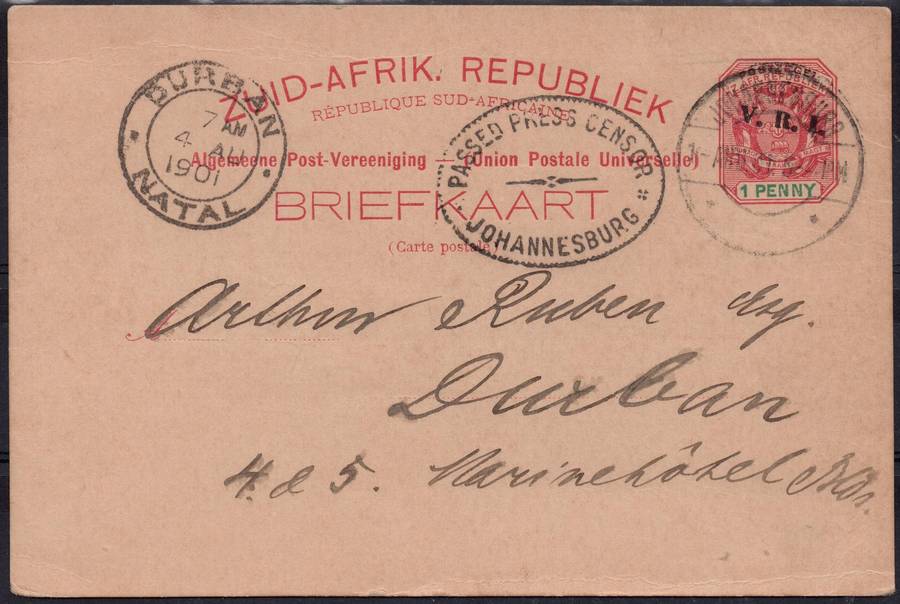 ZUID-AFRIK. REPUBLIEK
RÉPUBLIQUE SUD-AFRICAINE
Algemeene Post-Vereeniging — (Union Postale Universelle)
BRIEFKAART
(Carte postale)
DURBAN
7 AM
4 AU
1901
NATAL
PASSED PRESS CENSOR
JOHANNESBURG
POSTZEGEL
Z. AFR. REPUBLIEK
V. R. I.
1 PENNY
PM
Arthur Ruben Esq.
Durban
4. & 5. Marinehôtel Bldgs.